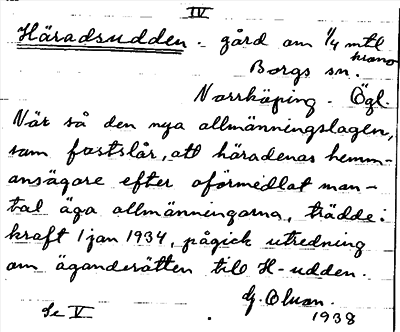 IV
Häradsudden - gård om 1/4 mtl
krono
Borgs sn.
Norrköping. Ögl.
När så den nya allmänningslagen,
som fastslår, att häradenas hemm-
ansägare efter oförmedlat man-
tal äga allmänningarna, trädde i
kraft 1 jan 1934, pågick utredning
om äganderätten till H-udden.
Hj. Olson.
Se V
1938